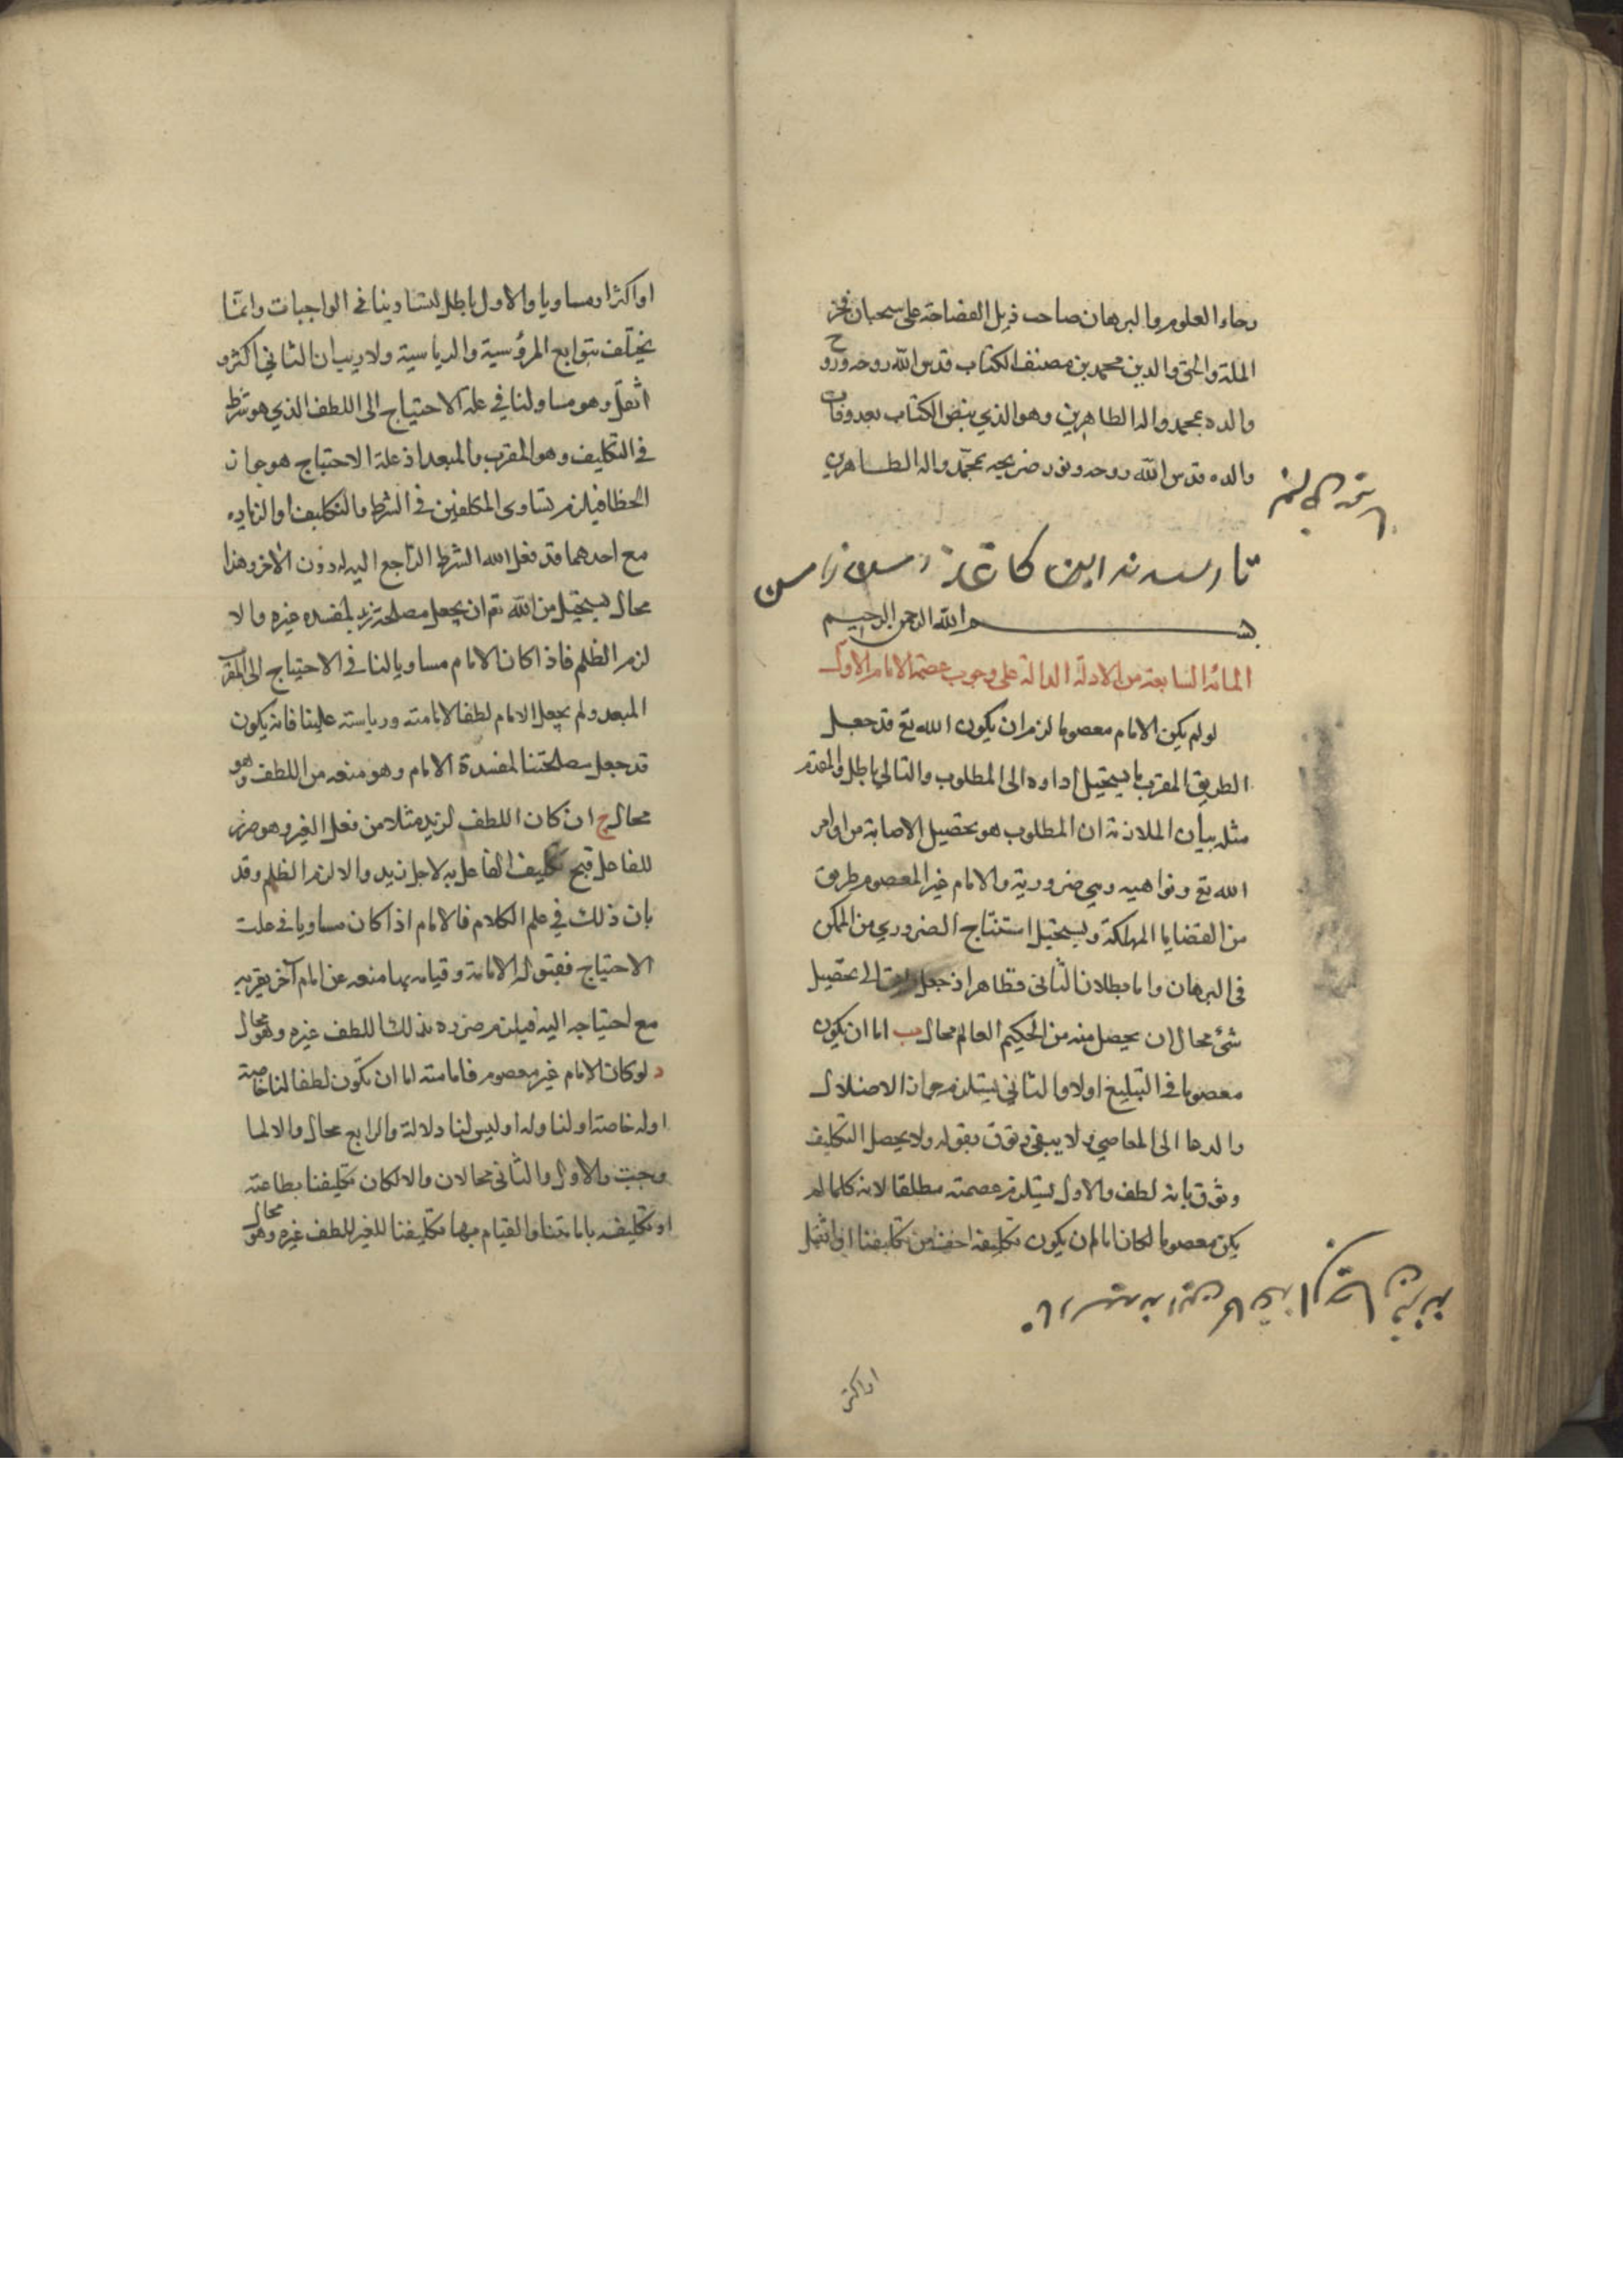 رحاء العلوم والبرهان صاحب ذيل الفصاحة على سحبان فخر
الملة والحق والدين محمد بن مصنف الكتاب قدس الله روحه وروح
والده بمحمد واله الطاهرين وهو الذي بيض الكتاب بعد وفات
والده قدس الله روحه ونور ضريحه بمحمد واله الطاهرين
تا رسيد نه اين كاغذ
بسم الله الرحمن الرحيم
المائة السابعة من الادلة الدالة على وجوب عصمة الامام الاول
لو لم يكن الامام معصوما لزم ان يكون الله تع قد جعل
الطريق المقرب ما يستحيل اداوه الى المطلوب والتالي باطل والمقدم
مثله بيان الملازمة ان المطلوب هو تحصيل الاصابة من اوامر
الله تع ونواهيه وهي ضرورية والامام غير المعصوم طريق
من القضايا المهلكة ويستحيل استنتاج الضروري من الممكن
في البرهان واما بطلان الثاني فظاهر اذ جعل طريق الى تحصيل
شئ محال ان يحصل منه من الحكيم العالم محال ب اما ان يكون
معصوما في التبليغ اولا والثاني يستلزم جواز الاضلال
والدعا الى المعاصي ولا يبقى وثوق بقوله ولا يحصل التكليف
وثوق بانه لطف والاول يستلزم عصمته مطلقا لانه كلما لم
يكن معصوما لكان اما ان يكون تكليفه اخف من تكليفنا او اثقل
تا رسيد نه اين كاغذ
او اكثر
او اكثر او مساويا والاول باطل لتساوينا في الواجبات وانما
يختلف بتوابع المرؤسية والرياسية ولا ريب ان الثاني اكثر و
اثقل وهو مساو لنا في علة الاحتياج الى اللطف الذي هو شرط
في التكليف وهو المقرب والمبعد اذ علة الاحتياج هو جواز
الخطا فيلزم تساوى المكلفين في الشرط والتكليف او الزياده
مع احدهما قد فعل الله الشرط الراجع اليه دون الاخر وهذا
محال يستحيل من الله تع ان يجعل مصلحة زيد لمفسده غيره والا
لزم الظلم فاذا كان الامام مساويا لنا في الاحتياج الى المقرب
المبعد ولم يجعل الامام لطفا لامامته ورياسته علينا فانه يكون
قد جعل مصلحتنا لمفسدة الامام وهو منعه من اللطف وهو
محال ج ان كان اللطف لزيد مثلا من فعل الغير وهو ضرر
للفاعل قبح تكليف الفاعل به لاجل زيد والا لزم الظلم وقد
بان ذلك في علم الكلام فالامام اذا كان مساويا في علت
الاحتياج فقبوله الامامة وقيامه بها منعه عن امام آخر يقربه
مع احتياجه اليه فيلزم ضرره بذلك اللطف غيره وهو محال
د لو كان الامام غير معصوم فامامته اما ان تكون لطفا لنا خاصة
اوله خاصة او لنا وله او ليس لنا ولا له والرابع محال والا لما
وجبت والاول والثاني محالان والا لكان تكليفنا بطاعته
او تكليفه بامامتنا والقيام بها تكليفنا للغير للطف غيره وهو محال